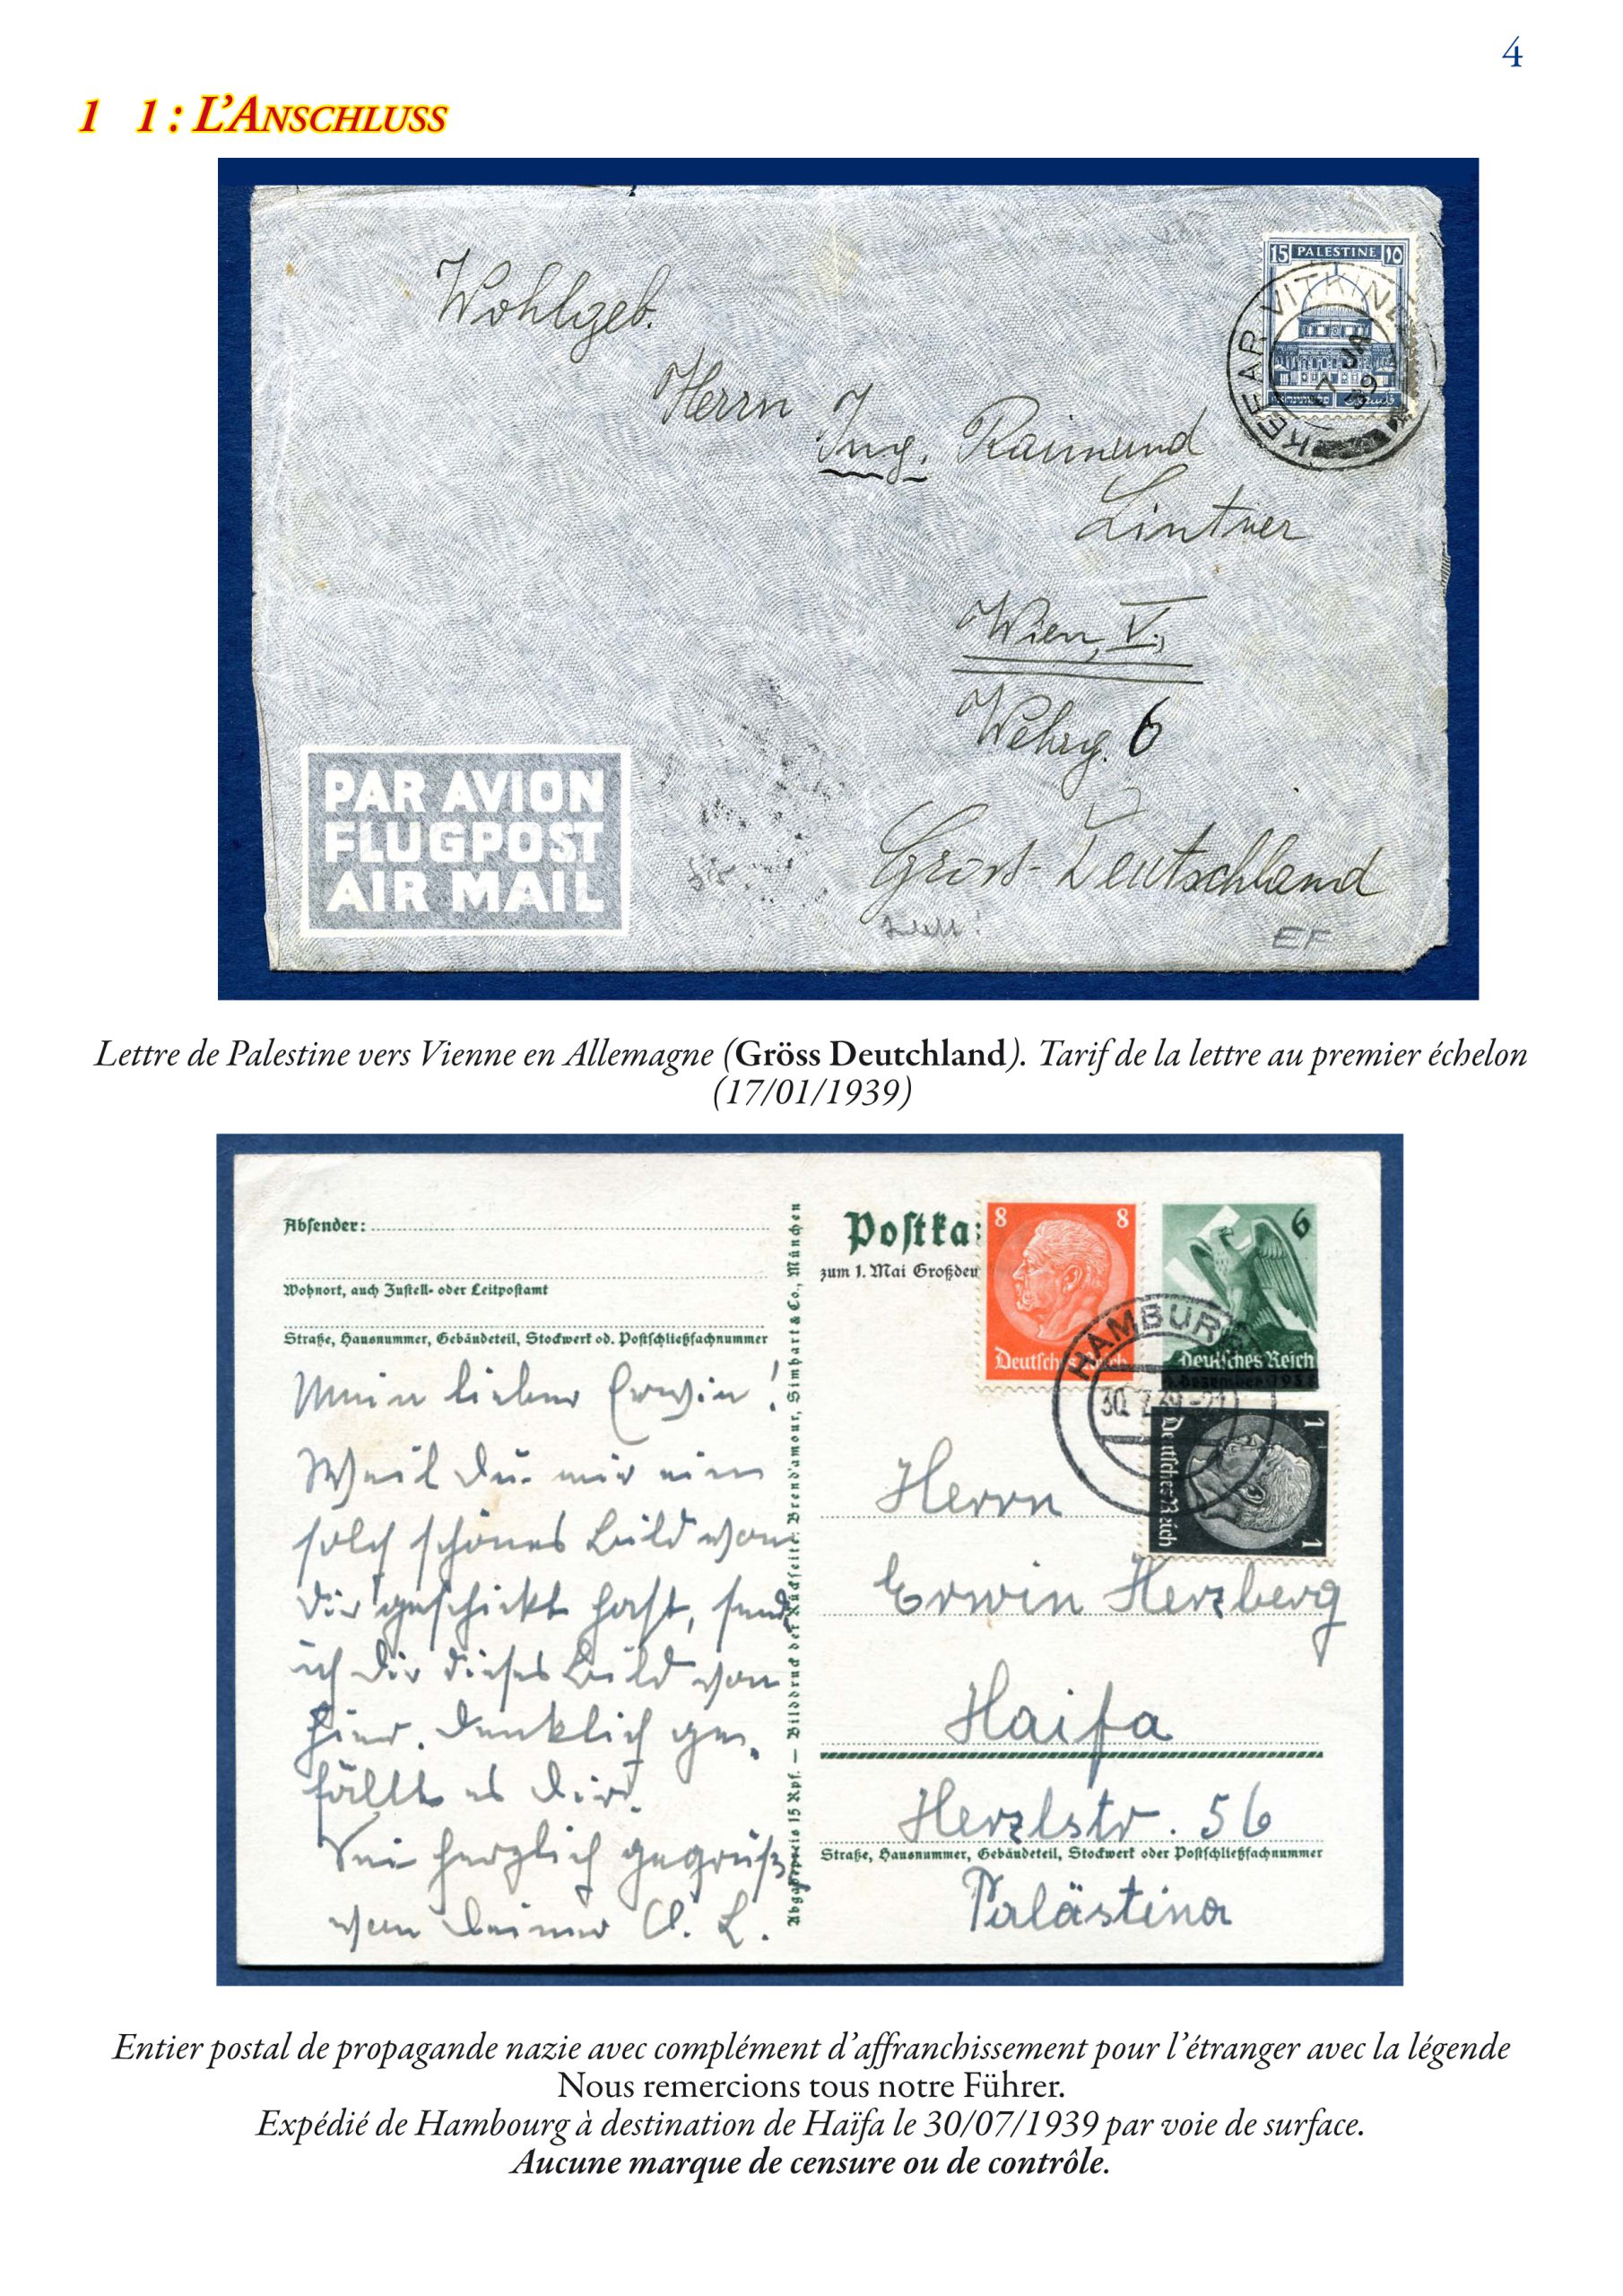 4
1 1 : L'Anschluss
15 PALESTINE 15
KEFAR VITKIN
17 JA
39
Wohlgeb.
Herrn Ing. Raimund
Lintner
Wien, V.,
Wehrg. 6
Gross-Deutschland
EF
PAR AVION
FLUGPOST
AIR MAIL
Lettre de Palestine vers Vienne en Allemagne (Gröss Deutchland). Tarif de la lettre au premier échelon
(17/01/1939)
Absender:
Wohnort, auch Zustell- oder Leitpostamt
Straße, Hausnummer, Gebäudeteil, Stockwerk od. Postschließfachnummer
Mein lieber Erwin!
Weil Du mir ein
solch schönes Bild von
Dir geschickt hast, sende
ich Dir dieses Bild von
hier. ge-
fällt es Dir.
Sei herzlich gegrüßt
von Deiner
Abgabepreis 15 Rpf. — Bilddruck der Rückseite: Brend'amour, Simhart & Co., München
Postka
zum 1. Mai Großdeu
8 8
Deutsches Reich
6
Deutsches Reich
HAMBURG
30. 7. 39 -21
1 1
Deutsches Reich
Herrn
Erwin Herzberg
Haifa
Herzlstr. 56
Straße, Hausnummer, Gebäudeteil, Stockwerk oder Postschließfachnummer
Palästina
Entier postal de propagande nazie avec complément d'affranchissement pour l'étranger avec la légende
Nous remercions tous notre Führer.
Expédié de Hambourg à destination de Haïfa le 30/07/1939 par voie de surface.
Aucune marque de censure ou de contrôle.